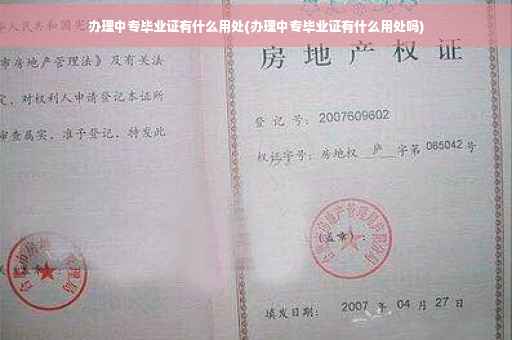 办理中专毕业证有什么用处(办理中专毕业证有什么用处吗)
华人民共和国宪
市房地产管理法》及有关法
定，对权利人申请登记本证所
审查属实，准予登记，特发此
房地产权证
登记号：2007609602
权证字号：房地权 庐 字第 085042 号
(盖章)：
填发日期：2007 年 04 月 27 日